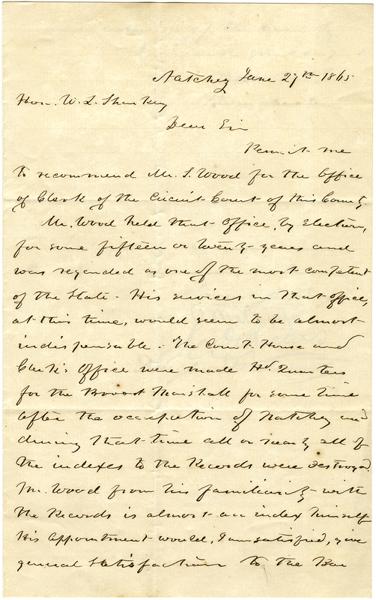 Natchez June 27th 1865
Hon. W. L. Sharkey
Dear Sir
Permit me
to recommend Mr. S. Wood for the Office
of Clerk of the Circuit Court of this County
Mr. Wood held that Office, by Election,
for some fifteen or twenty years and
was regarded as one of the most competent
of the State. His services in that office,
at this time, would seem to be almost
indispensable. The Court House and
Clerk's Office were made Hd. Quarters
for the Provost Marshall for some time
after the occupation of Natchez and
during that time all or nearly all of
the indexes to the Records were destroyed.
Mr. Wood from his familiarity with
the Records is almost an index himself
His appointment would, I am satisfied, give
general satisfaction to the Bar